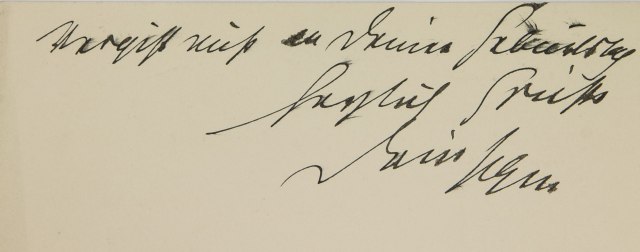 Vergiss nicht an Deinen Geburtstag
herzlich Grüße
Dein